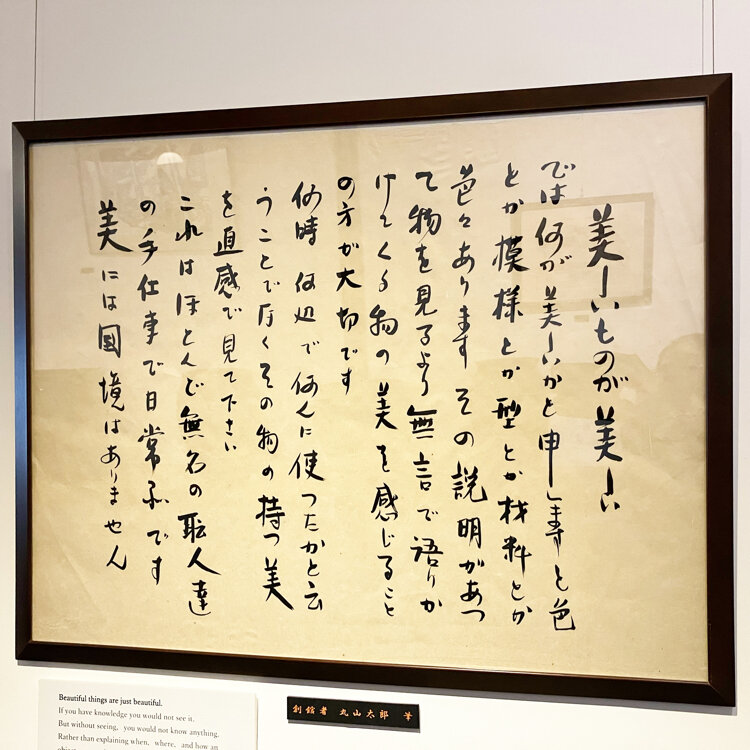 美しいものが美しい
では何が美しいかと申しますと色
とか模様とか型とか材料とか
色々あります その説明があつ
て物を見るより無言で語りか
けてくる物の美を感じること
の方が大切です
何時 何処で何んに使つたかと云
うことでなくその物の持つ美
を直感で見て下さい
これはほとんど無名の職人達
の手仕事で日常品です
美には国境はありません
創館者 丸山太郎 筆
Beautiful things are just beautiful.
If you have knowledge you would not see it.
But without seeing, you would not know anything.
Rather than explaining when, where, and how an